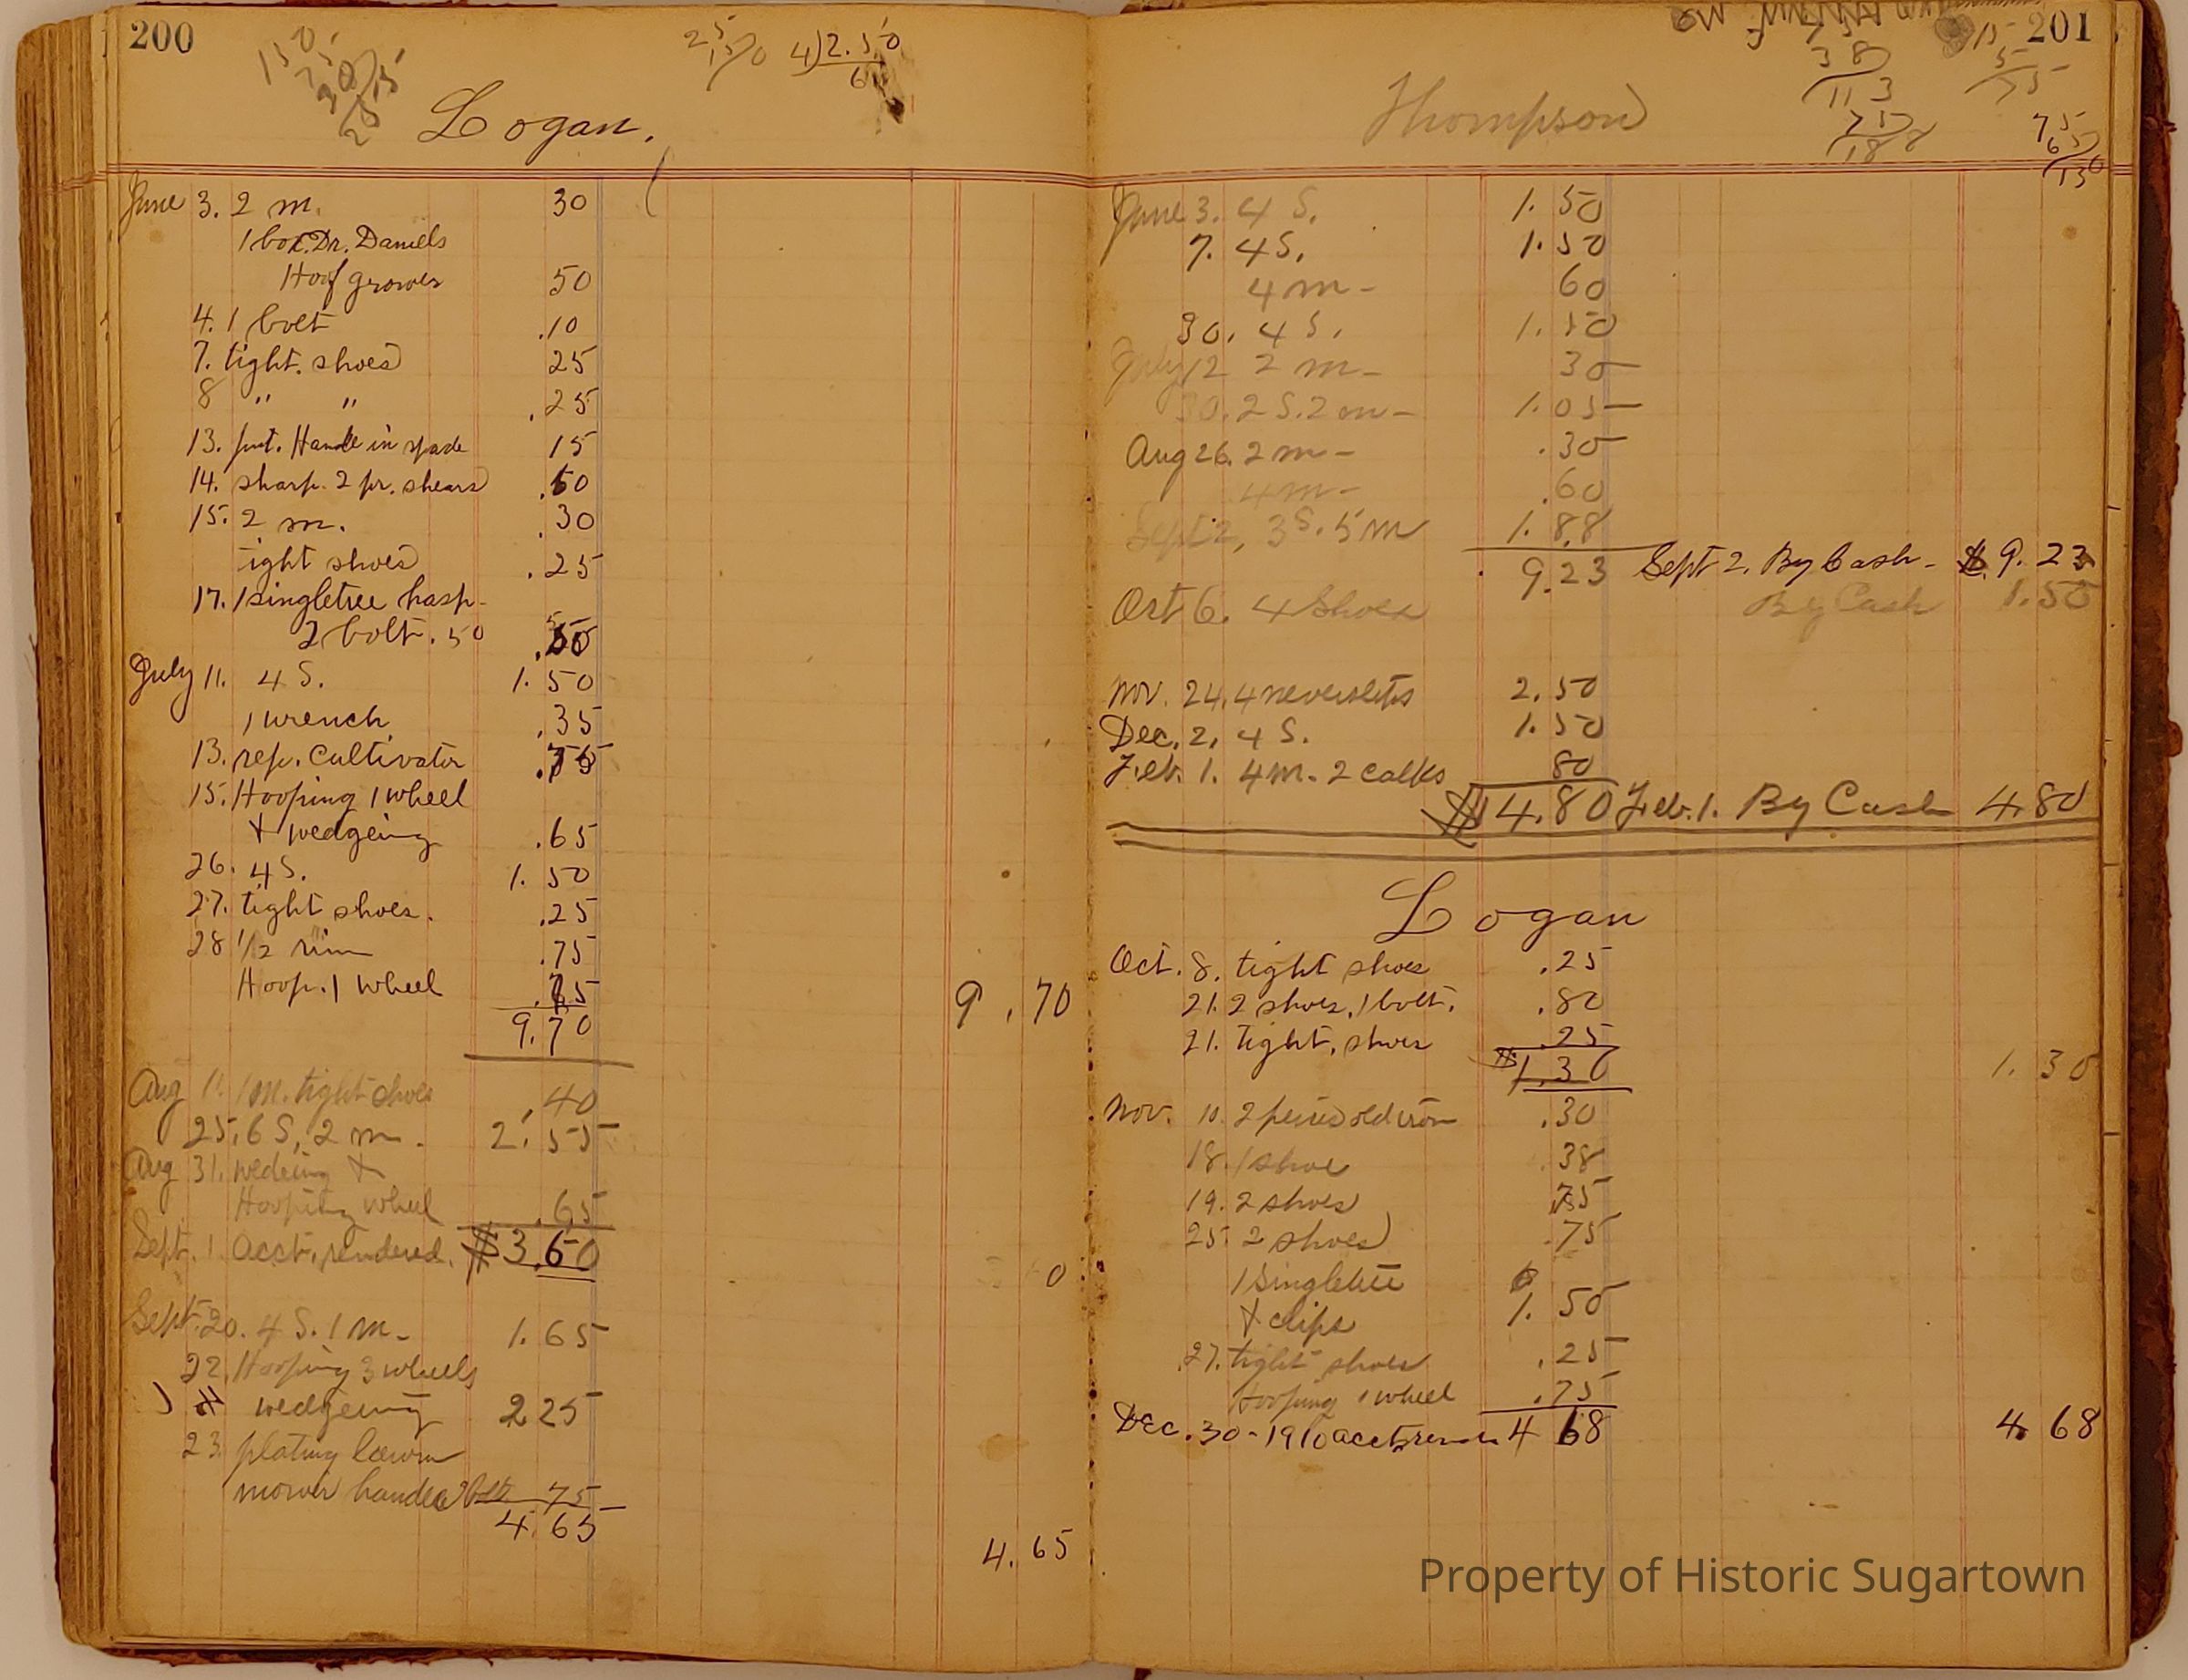 200
25
4)2.50
Logan.
June 3. 2 m. 30
1 box. Dr. Daniels
Hoof grower 50
4. 1 bolt .10
7. tight. shoes 25
8 " " .25
13. put. Handle in spade 15
14. sharp. 2 pr. shears .60
15. 2 m. .30
tight shoes .25
17. 1 singletree hasp-
2 bolt. 50
July 11. 4 S. 1.50
1 wrench .35
13. rep. cultivator
15. Hooping 1 wheel
& wedgeing .65
26. 4 S. 1.50
27. tight shoes. .25
28 1/2 rim .75
Hoop. 1 wheel
9.70 9.70
Aug 1m. tight shoes .40
25. 6 S, 2 m. 2.55
Aug 31. wedeing &
Hooping wheel .65
Sept. 1. Acct. rendered. $3.60
0
Sept. 20. 4 S. 1 m- 1.65
22. Hooping 3 wheels
wedgeing 2 25
23 plating lawn
mower handle bolt 75
4.65
4.65
201
15
38
113
75
75
65
Thompson
June 3. 4 S. 1.50
7. 4 S. 1.50
4 m- 60
30. 4 S. 1.50
July 12 2 m- 30
30. 2 S. 2 m- 1.05
Aug 26. 2 m- .30
4 m- .60
Sept 2, 3 S. 5 m 1.88
9.23 Sept 2. By Cash- $9.23
Oct 6. 4 Shoes By Cash 1.50
Nov. 24. 4 neverslips 2.50
Dec. 2, 4 S. 1.50
Feb. 1. 4 m. 2 calks 80
$4.80 Feb. 1. By Cash 4.80
Logan
Oct. 8. tight shoes .25
21. 2 shoes, 1 bolt. .80
21. tight, shoes .25
$1.30 1.30
Nov. 10. 2 peices old iron .30
18. 1 shoe .38
19. 2 shoes 75
25. 2 shoes .75
1 Singletree
& clips 1.50
27. tight shoes .25
Hooping 1 wheel .75
Dec. 30-1910 acct, 4 68 4.68
Property of Historic Sugartown